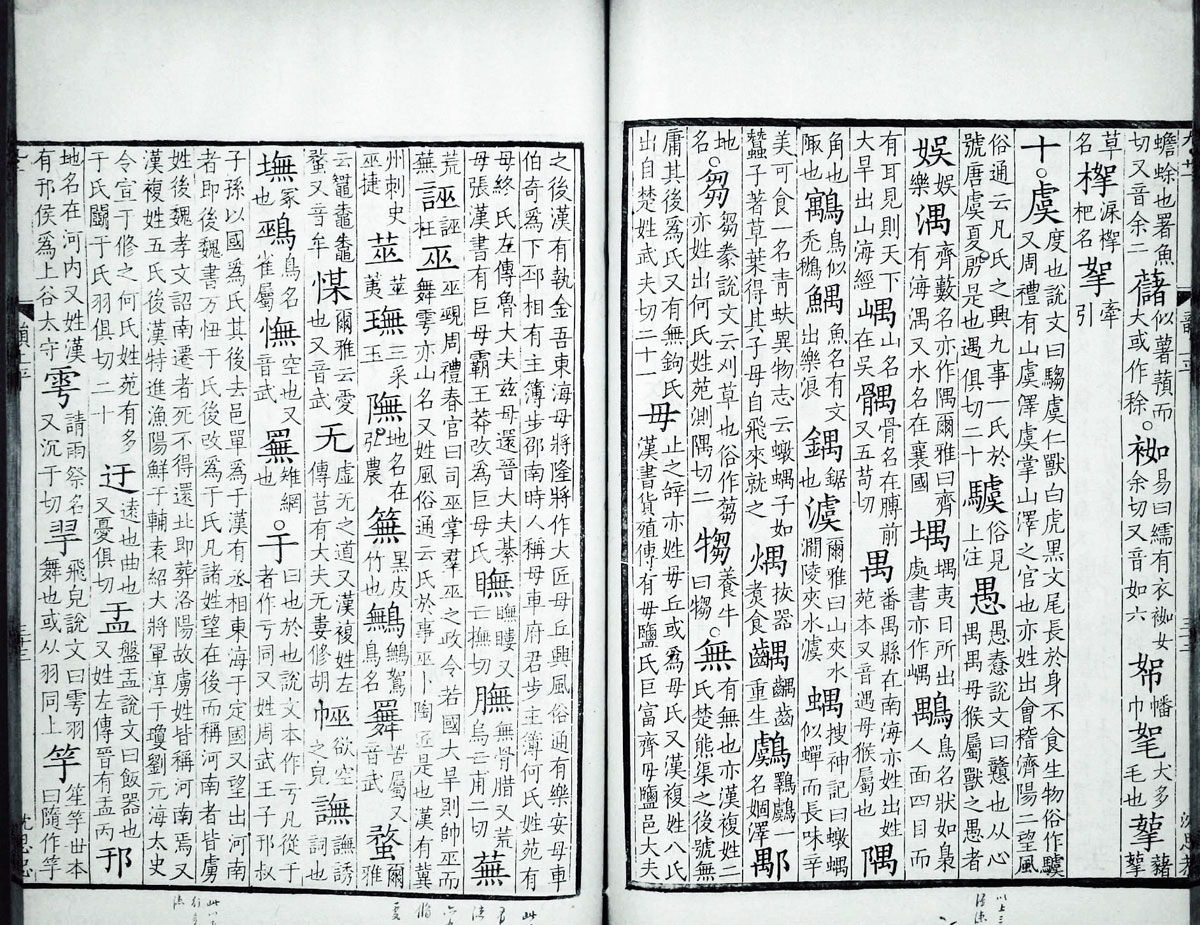 蟾蜍也署魚
切又音余二 藷 似薯蕷而大或作䅷 ○ 袽 易曰繻有衣袽女余切又音如六 帤 幡巾 毟 犬多毛也 蕠 藸蕠
草名 㮟 淭㮟杷名 挐 牽引
十 ○ 虞 度也說文曰騶虞仁獸白虎黑文尾長於身不食生物俗作驉又周禮有山虞澤虞掌山澤之官也亦姓出會稽濟陽二望風
俗通云凡氏之興九事一氏於號唐虞夏殷是也遇俱切二十 驉 俗見上注 愚 愚戇說文曰戇也从心禺禺母猴屬獸之愚者
娛 娛樂 湡 齊藪名亦作隅爾雅曰齊有海湡又水名在襄國 堣 堣夷日所出處書亦作嵎 鶝 鳥名狀如梟人面四目而
有耳見則天下大旱出山海經 嵎 山名在吳 髃 骨名在膊前又五苟切 禺 番禺縣在南海亦姓出姓苑本又音遇母猴屬也 隅
角也陬也 鸆 鳥似禿鶖 鰅 魚名有文出樂浪 鍝 鋸也 澞 爾雅曰山夾水澗陵夾水澞 蝺 搜神記曰蝺似蟬而長味辛
美可食一名青蚨異物志云蝺子如蠶子著草葉得其子母自飛來就之 㷒 拔器煑食 齵 齵齒重生 鸆 鸅鸆一名婟澤 鄅
地名 ○ 芻 芻豢說文云刈草也俗作蒭亦姓出何氏姓苑測隅切二 犓 養牛曰犓 ○ 無 有無也亦漢複姓二氏楚熊渠之後號無
庸其後爲氏又有無鉤氏出自楚姓武夫切二十一 毋 止之辝亦姓毋丘或爲毋氏又漢複姓八氏漢書貨殖傳有毋鹽氏巨富齊毋鹽邑大夫
之後漢有執金吾東海毋將隆將作大匠毋丘興風俗通有樂安毋車伯奇爲下邳相有主簿步邵南時人稱毋車府君步主簿何氏姓苑有
毋終氏左傳魯大夫茲毋還晉大夫綦毋張漢書有巨毋霸王莽改爲巨毋氏 瞴 瞴瞜又亡撫切 膴 無骨腊又荒烏云甫二切 蕪
荒蕪 誣 誣枉 巫 巫覡周禮春官曰司巫掌羣巫之政令若國大旱則帥巫而舞雩亦山名又姓風俗通云氏於事巫卜陶匠是也漢又有冀
州刺史巫捷 莁 莁荑 璑 三采玉 䧅 地名在弘農 䉑 黑皮竹也 鷡 鷡鴽鳥名 䍢 苦屬又音武 蝥 爾雅
云鼅鼄鼄蝥又音牟 㷬 爾雅云愛也又音武 无 虛无之道又漢複姓左傳莒有大夫无婁修胡 㡔 欲空之皃 譕 譕誘詞也
墲 冢也 䳇 鳥名雀屬 憮 空也又音武 䍢 雉網也 ○ 于 曰也於也說文本作亏凡從于者作亏同又姓周武王子邘叔
子孫以國爲氏其後去邑單爲于漢有丞相東海于定國又望出河南者即後魏書万忸于氏後改爲于氏凡諸姓望在後而稱河南者皆虜
姓後魏孝文詔南遷者死不得還北即葬洛陽故虜姓皆稱河南焉又漢複姓五氏後漢特進漁陽鮮于輔袁紹大將軍淳于瓊劉元海太史
令宣于修之何氏姓苑有多于氏闞于氏羽俱切二十 迂 遠也曲也又憂俱切 盂 盤盂說文曰飯器也又姓左傳晉有盂丙 邘
地名在河內又姓漢有邘侯爲上谷太守 雩 請雨祭名又沉于切 䍂 飛皃說文曰雩羽舞也或从羽同上 竽 笙竽世本曰隨作竽